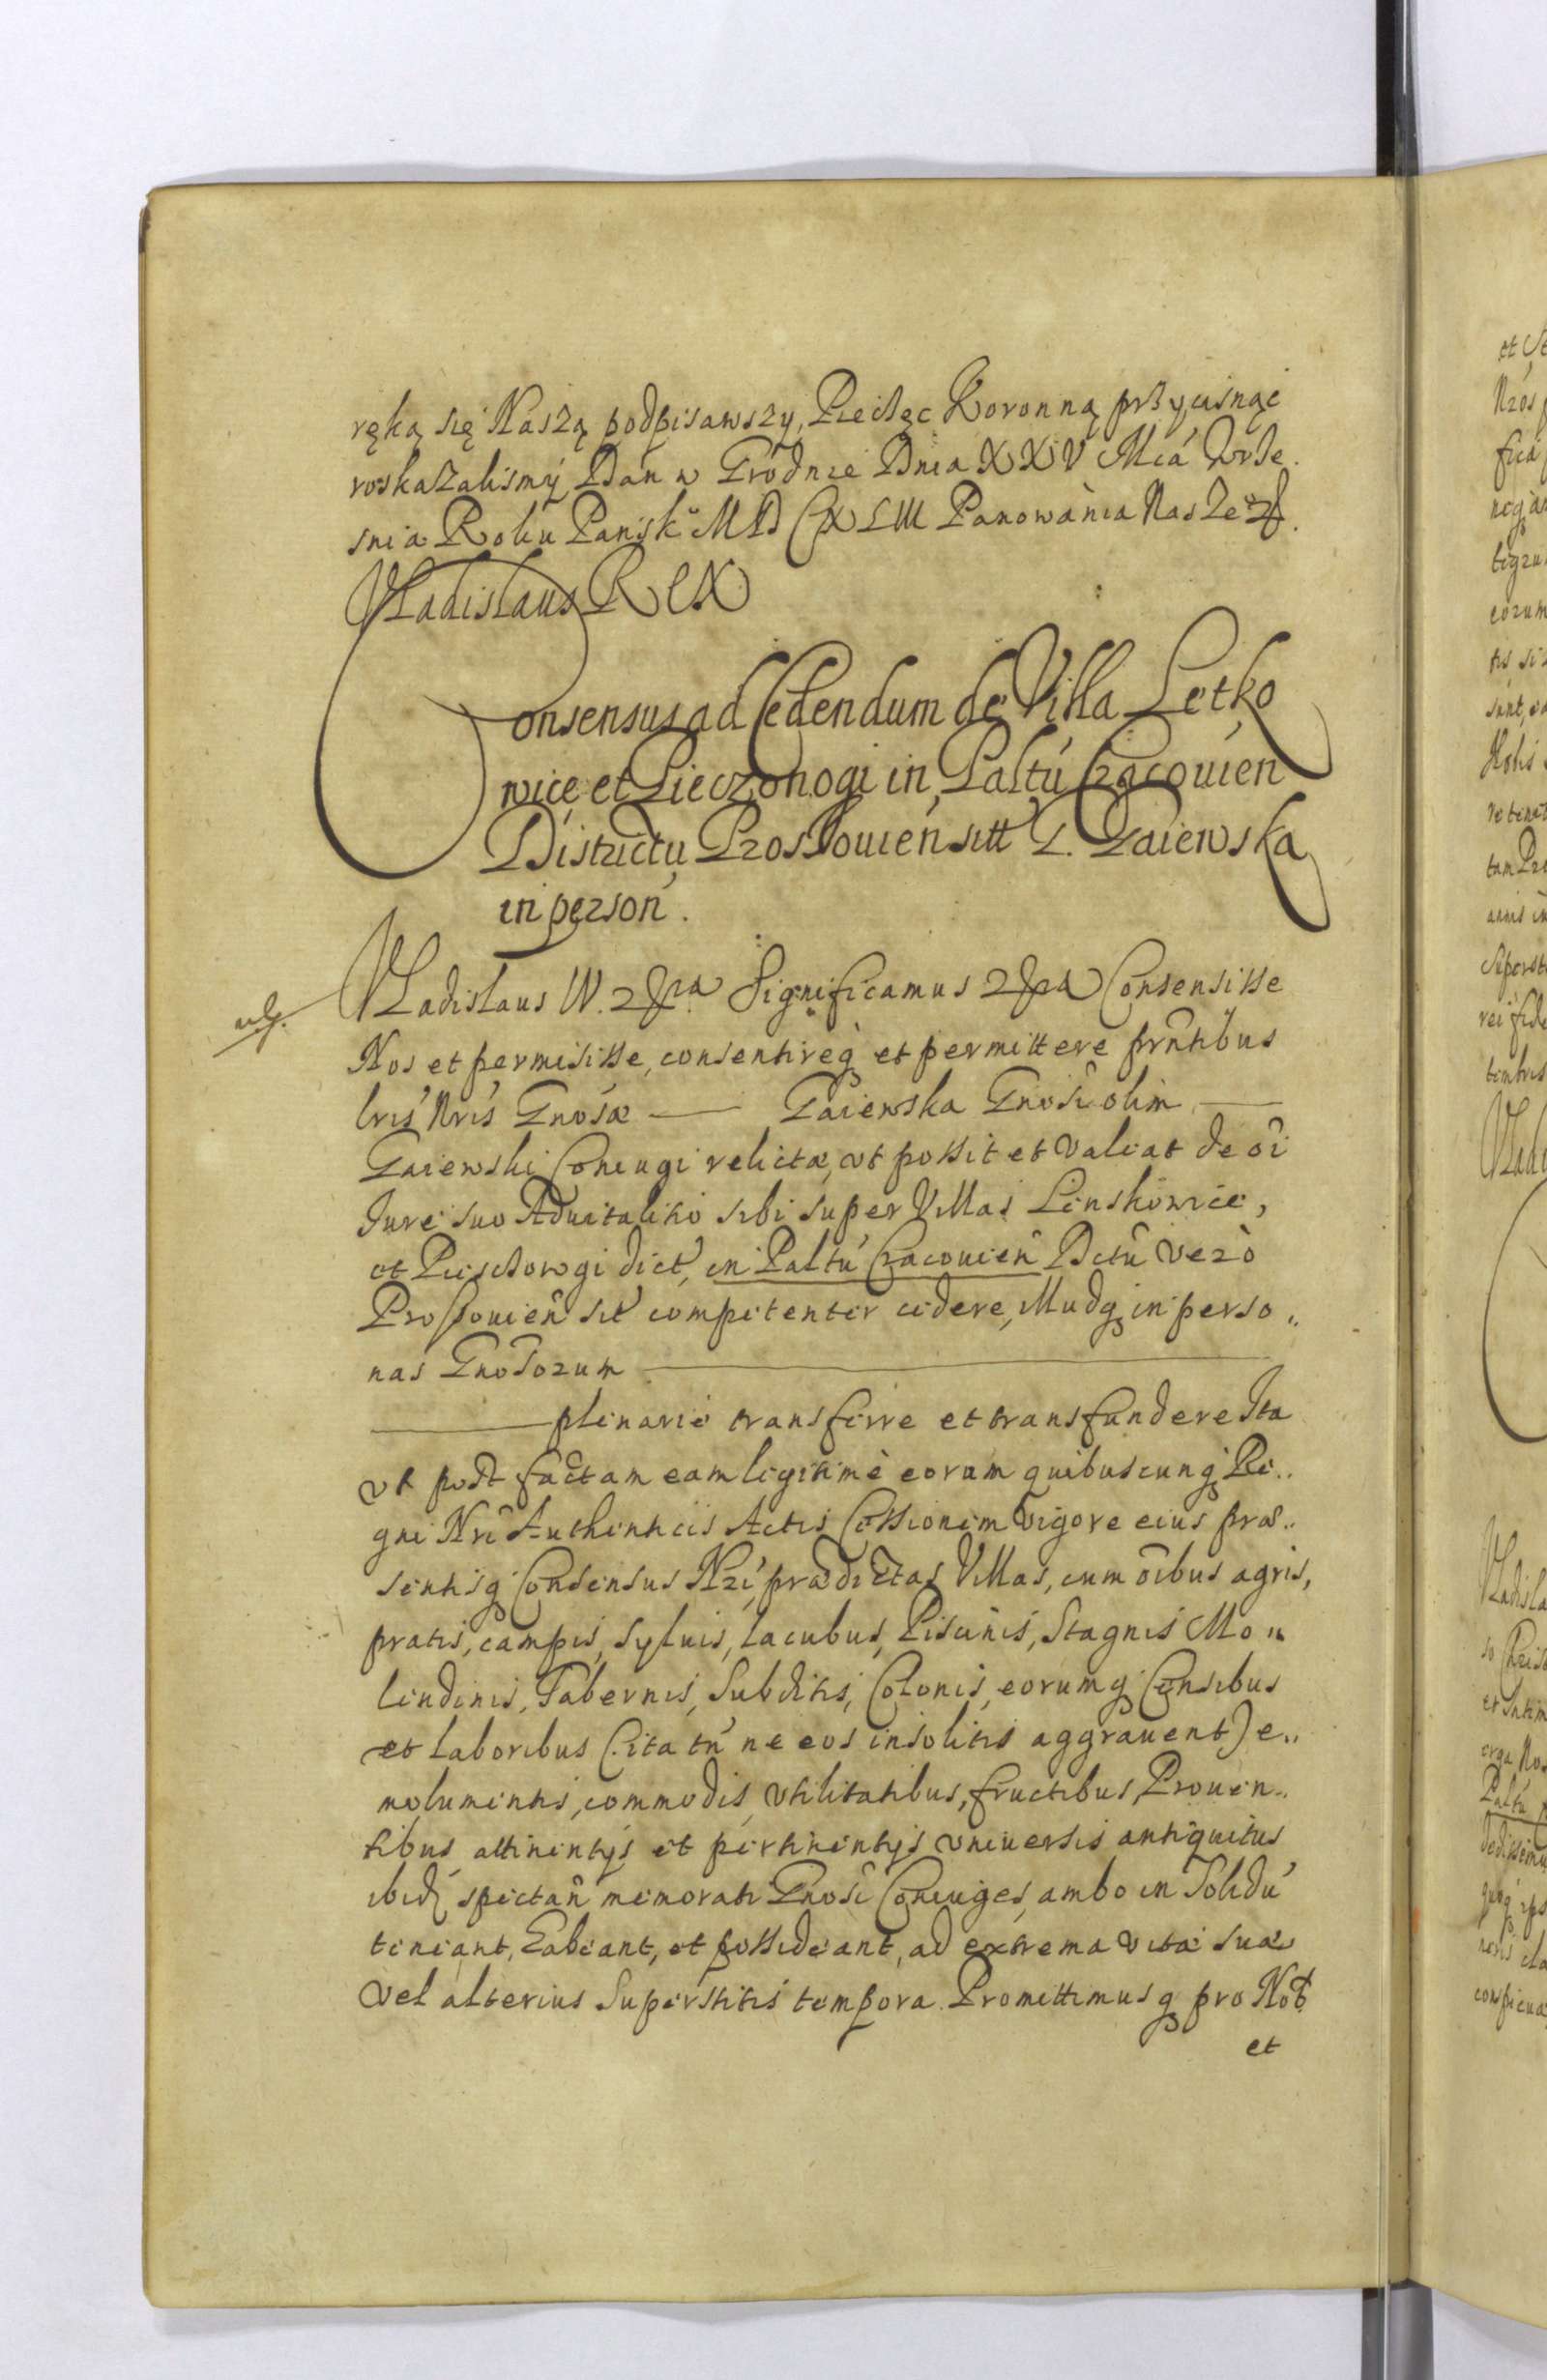 ręką się Naszą podpisawszy, Pieczęc Koronną przycisnąć
roskazalismy Dan w Grodnie Dnia XXV Mcá Wrze
snia Roku Pańsk° MD CXLIII Panowánia Nasze
Vladislaus Rex
Consensus ad Cedendum de Villa Letko
wice et Pieczonogi in Paltú Cracouien
Districtu Prossouien sitt G. Gaiewska
in person.
Vladislaus IV. Significamus Consensisse
Nos et permisisse, consentireq et permittere prntibus
lris Nris Gnosæ — Gaiewska Gnosi olim —
Gaiewski Coniugi relictæ, vt possit et valeat de oi
Jure suo Aduitalitio sibi super Villas Linskowice,
et Pieschowgi dict, in Paltú Cracouien Dctu verò
Prossouien sit competenter cedere, Illudq in perso
nas Gnosorum —
— plenarie transferre et transfundere Ita
vt post factam eam legitimè coram quibuscunq Re
gni Nri Authenticis Actis Cessionem vigore eius præ
sentisq Consensus Nri, prædictas Villas, cum oibus agris,
pratis, campis, syluis, lacubus, Piscinis, Stagnis Mo
lendinis, Tabernis, Subditis, Colonis, eorumq Censibus
et laboribus (ita tn ne eos insolitis aggrauent) e
molumentis, commodis, vtilitatibus, fructibus, Prouen
tibus attinentijs et pertinentijs vniuersis antiquitus
ibid spectan memorati Gnosi Coniuges, ambo in Solidú
teneant, habeant, et possideant, ad extrema vitæ suæ
vel alterius Superstitis tempora. Promittimusq pro Nob
et